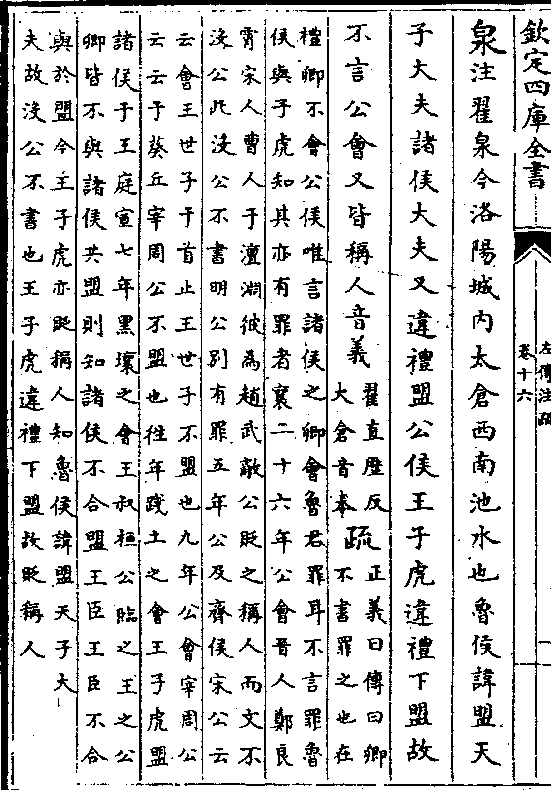 欽定四庫全書
左傳注疏
卷十六
泉注翟泉今洛陽城内太倉西南池水也魯侯諱盟天
子大夫諸侯大夫又違禮盟公侯王子虎違禮下盟故
不言公會又皆稱人音義
翟直歴反
大倉音泰
疏
正義曰傳曰卿
不書罪之也在
禮卿不會公侯唯言諸侯之卿會魯君罪耳不言罪魯
侯與子虎知其亦有罪者襄二十六年公會晉人鄭良
霄宋人曹人于澶淵彼為趙武敵公貶之稱人而文不
没公此没公不書明公别有罪五年公及齊侯宋公云
云會王世子于首止王世子不盟也九年公會宰周公
云云于葵丘宰周公不盟也往年踐土之會王子虎盟
諸侯于王庭宣七年黑壤之會王叔桓公臨之王之公
卿皆不與諸侯共盟則知諸侯不合盟王臣王臣不合
與於盟今王子虎亦貶稱人知魯侯諱盟天子大
夫故没公不書也王子虎違禮下盟故貶稱人